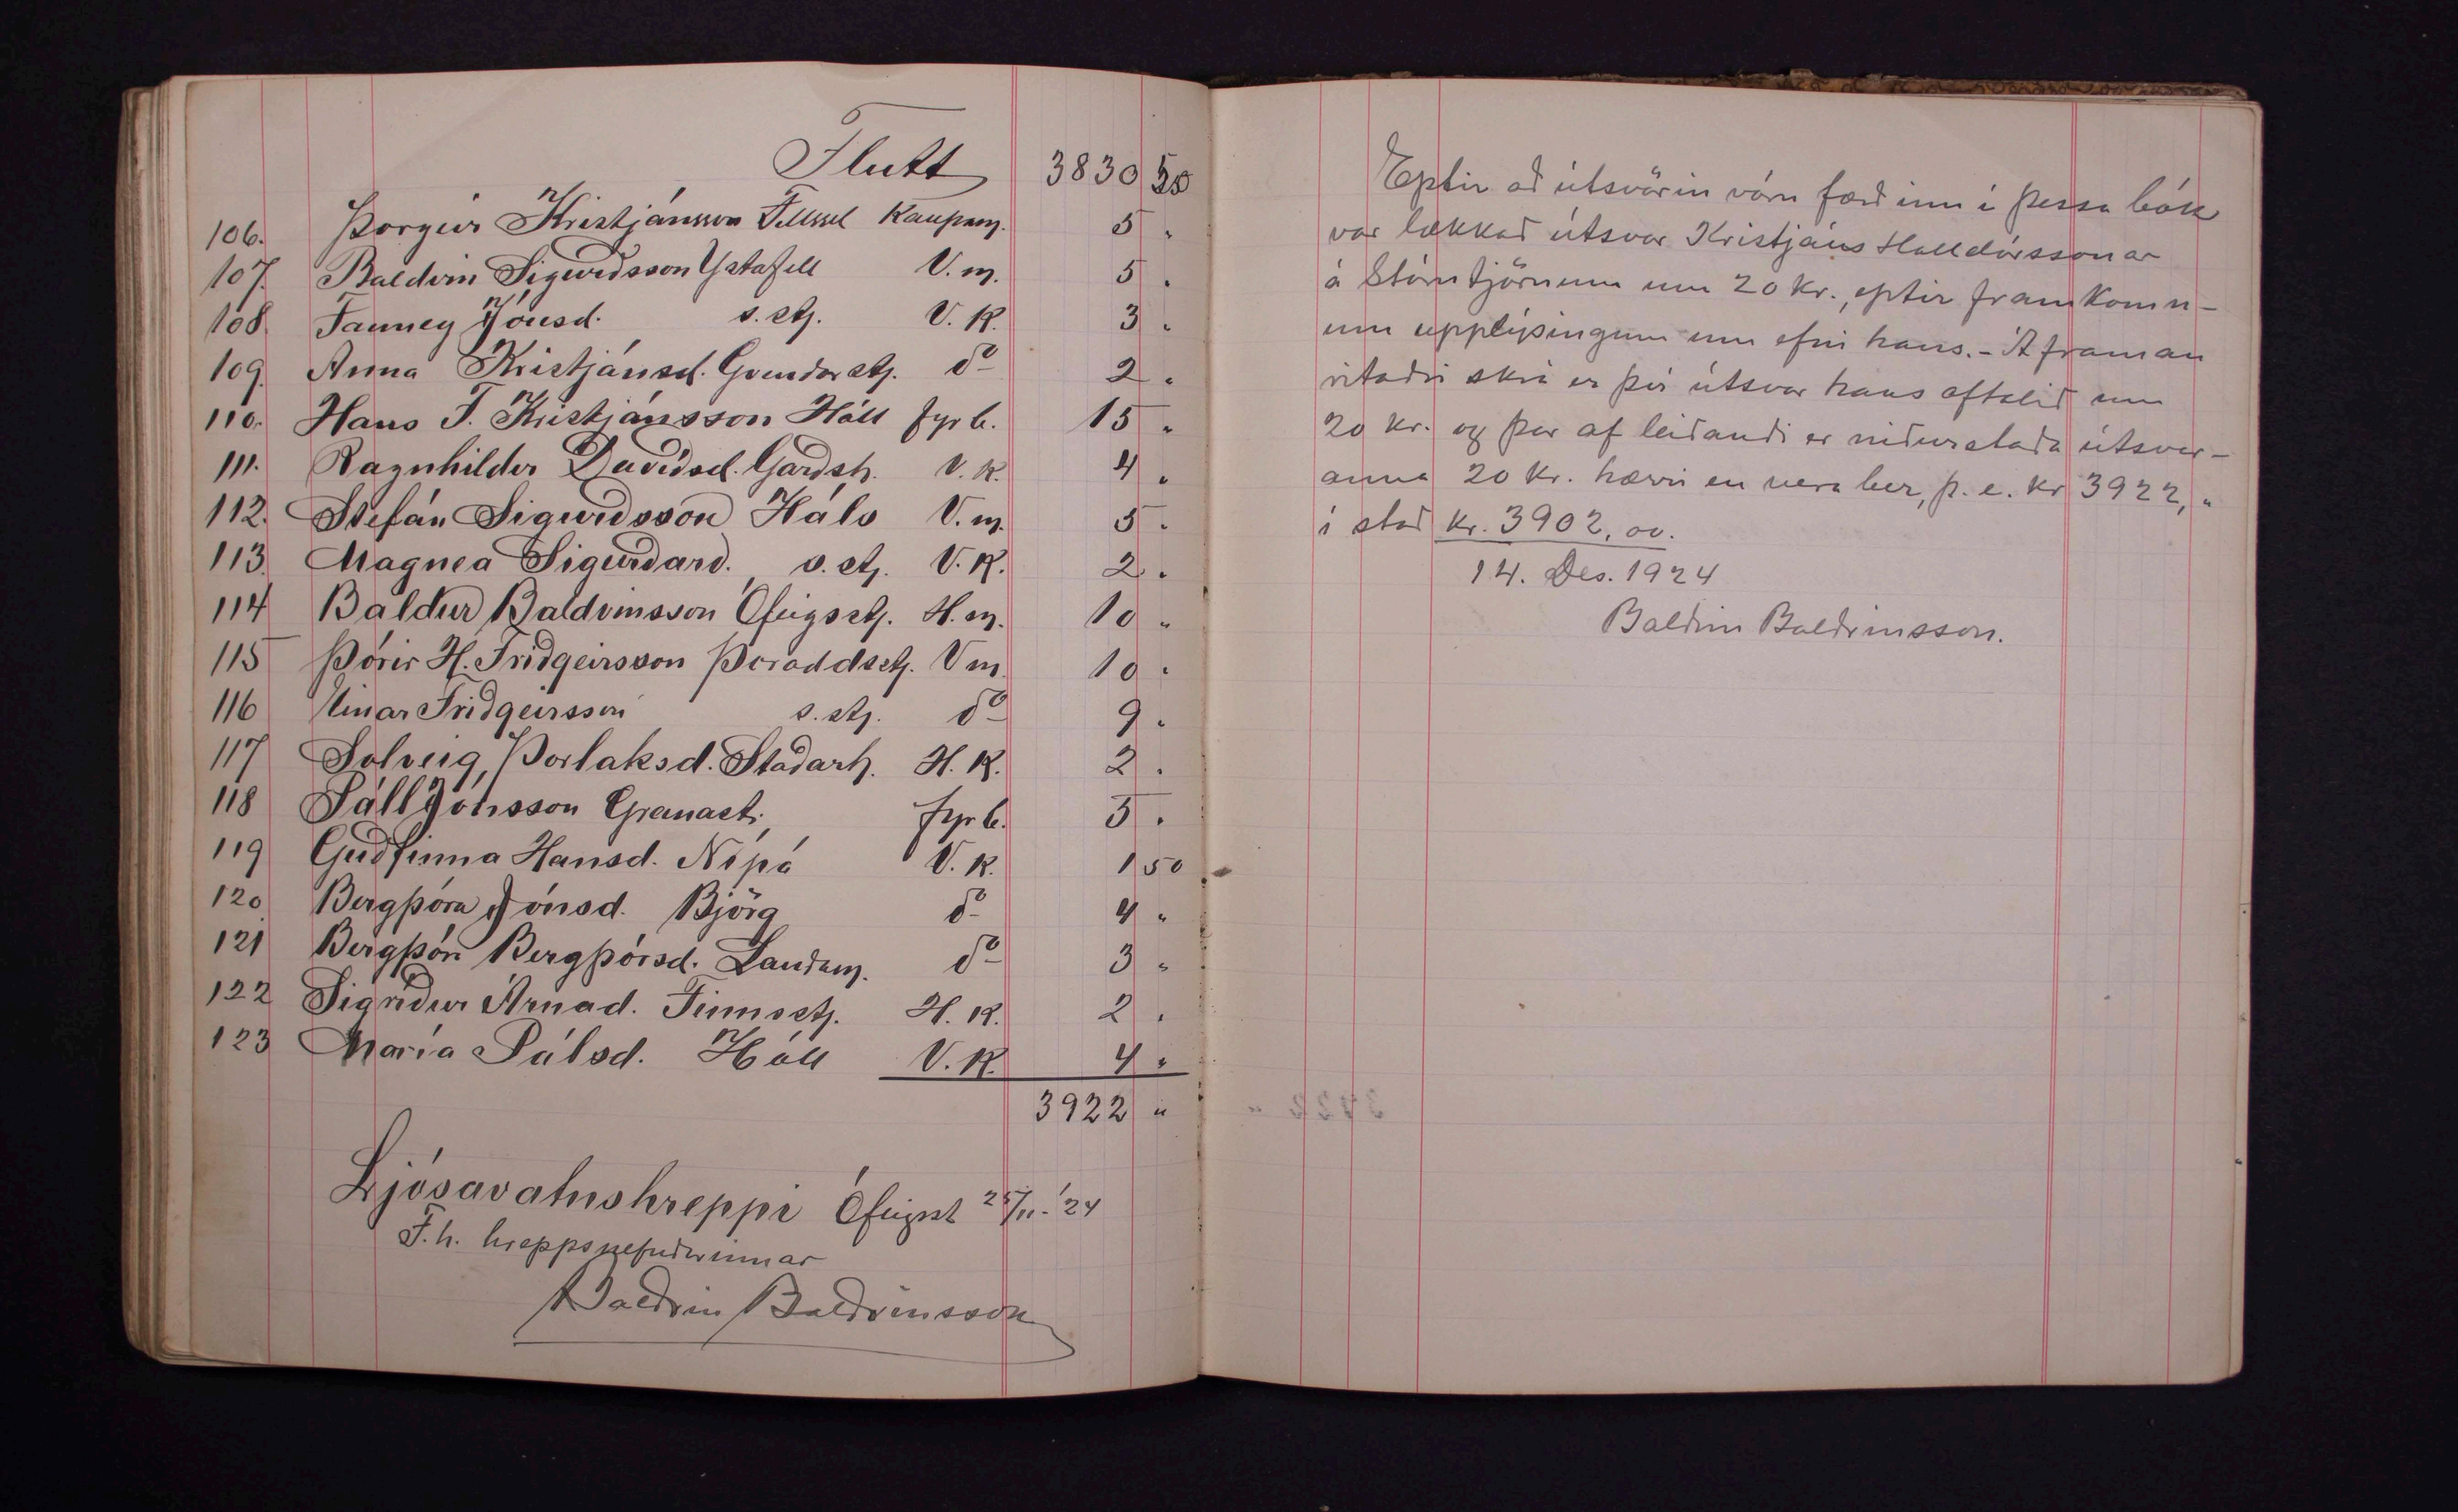 Flutt 3830 50
106. Þorgeir Kristjánsson Fellssel Kaupam. 5 "
107. Baldvin Sigurdsson Ystafell V.m. 5 "
108. Fanney Jónsd. s.stj. V.K. 3 "
109. Anna Kristjánsd. Gvendarstj. do 2 "
110. Hans F. Kristjánsson Holl fyrb. 15 "
111. Ragnhildur Davídsd. Gardsh. V.K. 4 "
112. Stefán Sigurdsson Háls V.m. 5 "
113. Magnea Sigurdard. s.stj. V.K. 2 "
114 Baldur Baldvinsson Ófeigsstj. H.m. 10 "
115 Þórir H. Fridgeirsson Þoroddsstj. Vm. 10 "
116 Einar Fridgeirsson s.stj. do 9 "
117 Solveig Þorlaksd. Stadarh. H.K. 2 "
118 Páll Jónsson Granast. fyrb. 5 "
119 Gudfinna Hansd. Nípá V.K. 1 50
120 Bergþóra Jónsd. Björg do 4 "
121 Bergþóra Bergþórsd. Landam. do 3 "
122 Sigridur Árnad. Finnsstj. H.K. 2 "
123 María Pálsd. Holl V.K. 4 "
3922 "
Ljósavatnshreppi Ófeigsst 25/11.'24
F.h. hreppsnefndarinnar
Baldvin Baldvinsson
Eptir ad útsvörin vóru færd inn i þessa bók
var lækkad útsvar Kristjáns Halldórssonar
á Stórutjörnum um 20 kr., eptir framkomn-
um upplýsingum um efni hans. - Á framan
ritadri skrá er því útsvar hans oftalid um
20 kr. og þar af leidandi er nidurstada útsvar-
anna 20 kr. hærri en vera ber, þ.e. kr 3922, "
i stad kr. 3902, oo.
14. Des. 1924
Baldvin Baldvinsson.